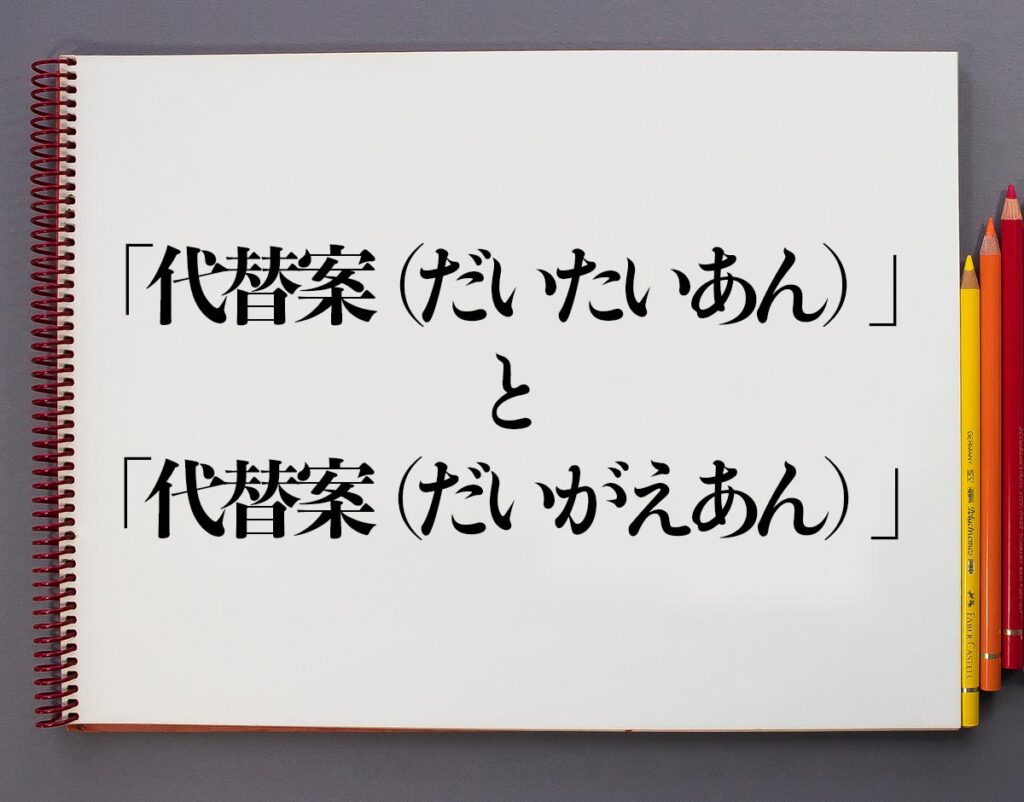 「代替案（だいたいあん）」
と
「代替案（だいがえあん）」
GERMANY
Polychromos
FABER CASTELL